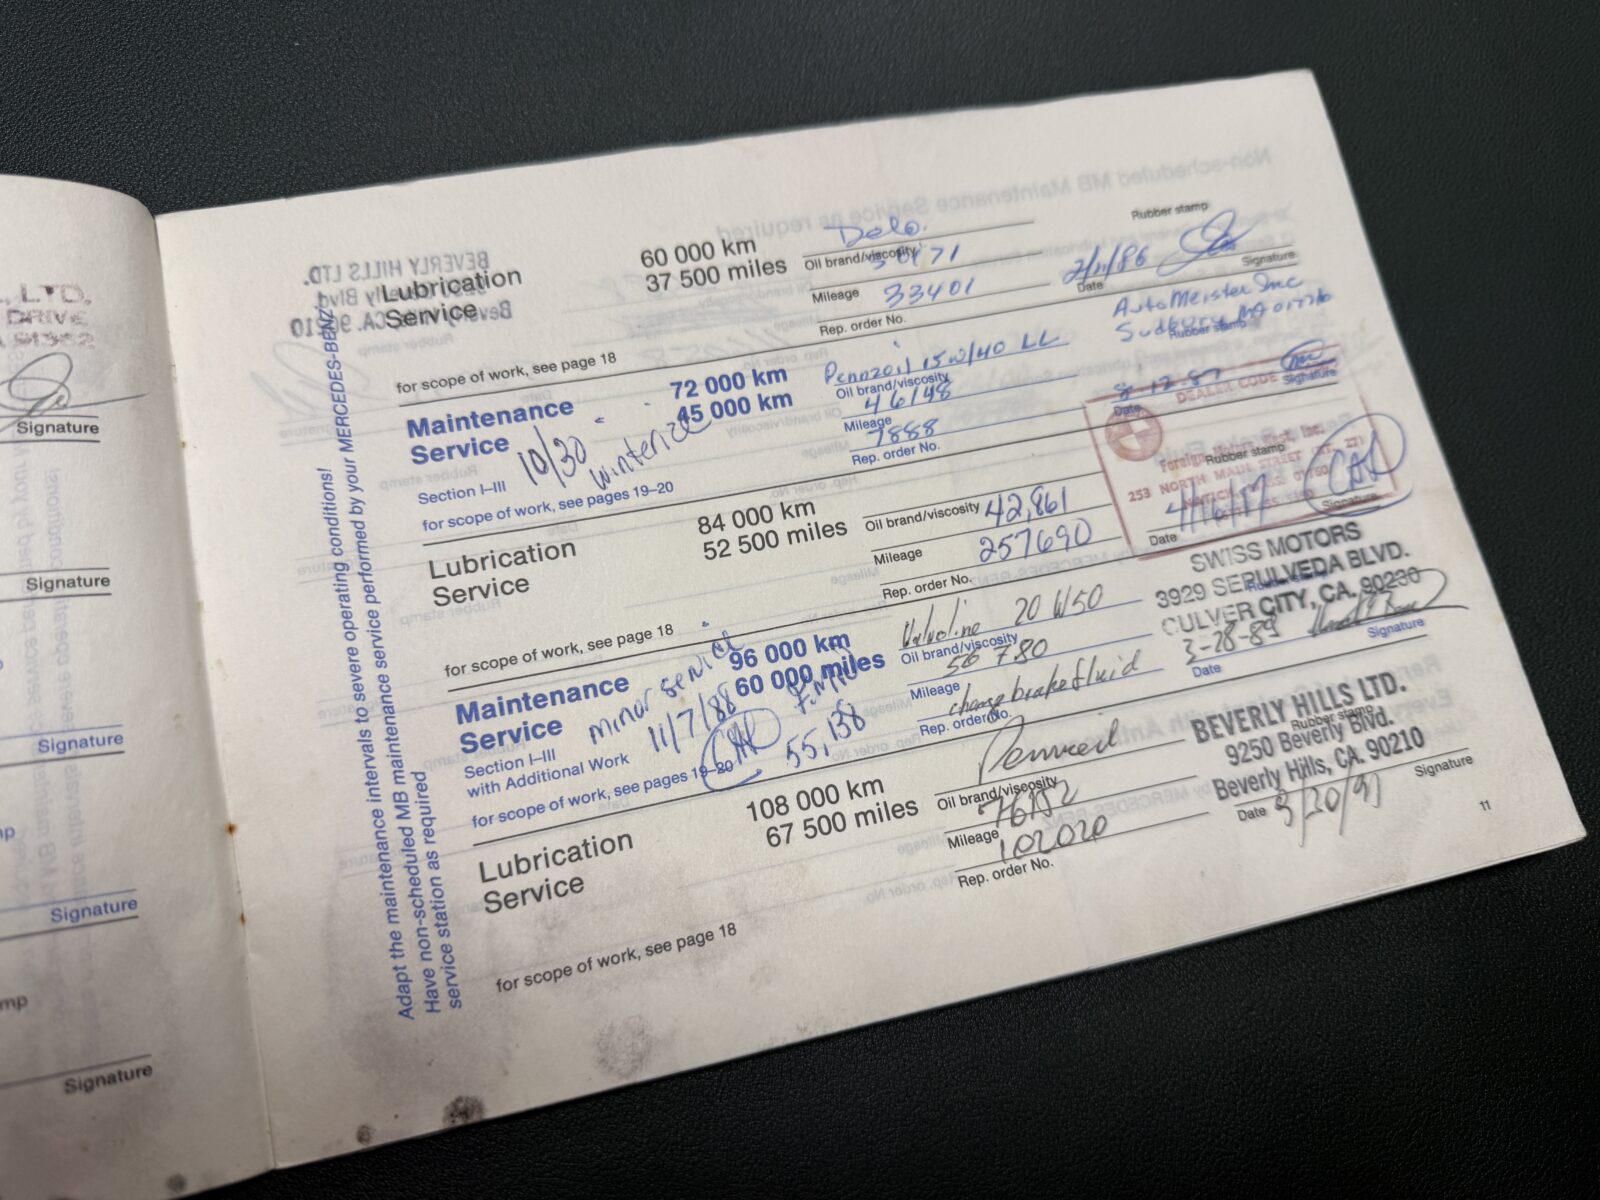 L, LTD.
DRIVE
Signature
Signature
Signature
Signature
Signature
Adapt the maintenance intervals to severe operating conditions!
Have non-scheduled MB maintenance service performed by your MERCEDES-BENZ
service station as required
Non-scheduled MB Maintenance Service as required
BEVERLY HILLS LTD.
Lubrication
Service
60 000 km
37 500 miles
for scope of work, see page 18
Delo.
Oil brand/viscosity
Mileage
33401
Rep. order No.
Rubber stamp
2/11/86
Date
Signature
Maintenance
Service
Section I–III
72 000 km
45 000 km
10/30 winterize
for scope of work, see pages 19–20
Pennzoil 15W/40 LL
Oil brand/viscosity
46148
Mileage
7888
Rep. order No.
AutoMeister Inc
Sudbury MA 01776
Rubber stamp
8-12-87
Date
Signature
Lubrication
Service
84 000 km
52 500 miles
for scope of work, see page 18
Oil brand/viscosity
42,861
Mileage
257690
Rep. order No.
DEALER CODE
Foreign Motors West, Inc.
253 NORTH MAIN STREET
Rubber stamp
Date
Signature
CAD
Maintenance
Service
Section I–III
with Additional Work
96 000 km
60 000 miles
minor service
11/7/88
CAD
55,138
for scope of work, see pages 19–20
Valvoline 20W50
Oil brand/viscosity
56780
Mileage
change brake fluid
Rep. order No.
SWISS MOTORS
3929 SEPULVEDA BLVD.
CULVER CITY, CA. 90230
3-28-89
Date
Signature
Lubrication
Service
108 000 km
67 500 miles
for scope of work, see page 18
Oil brand/viscosity
76152
Mileage
102020
Rep. order No.
BEVERLY HILLS LTD.
Rubber stamp
9250 Beverly Blvd.
Beverly Hills, CA. 90210
Date
Signature
11